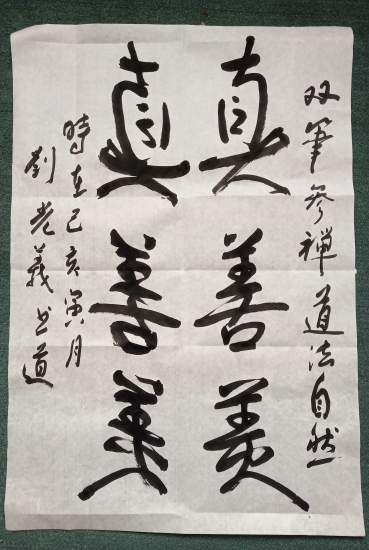 双筆参禅道法自然
真善美
真善美
時在己亥寅月
刘老義书道